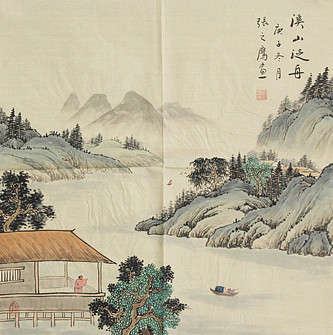 溪山泛舟
庚子冬月
张之鹰畫